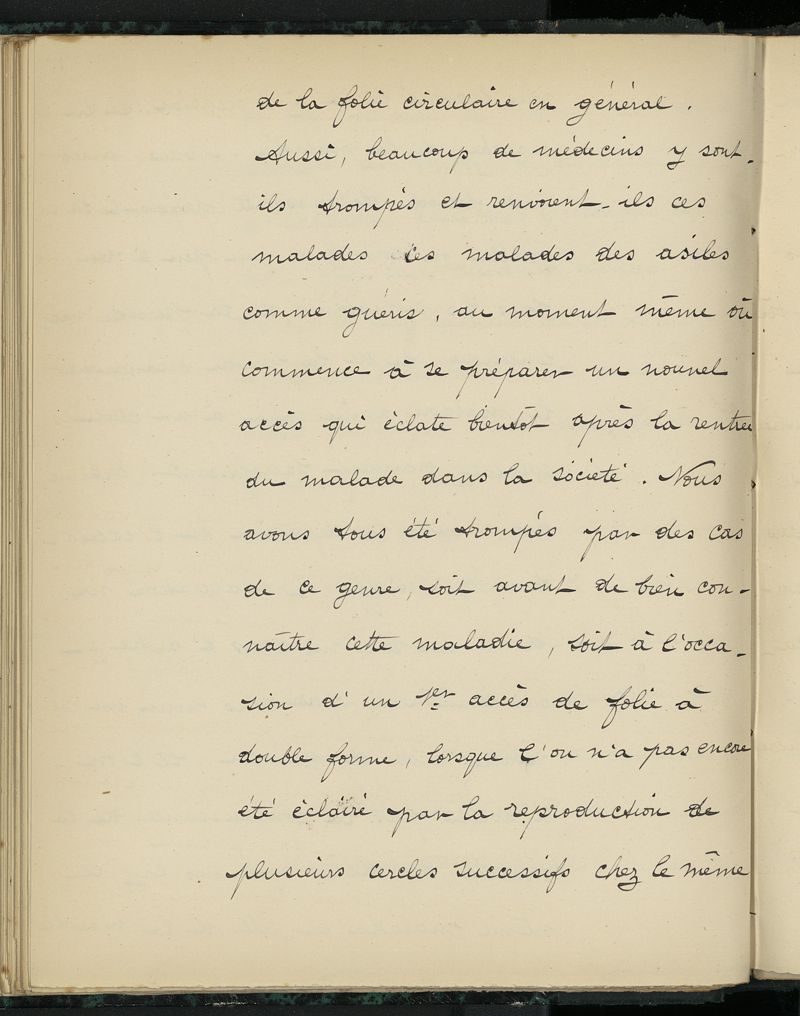 de la folie circulaire en général.
Aussi, beaucoup de médecins y sont-
ils trompés et renvoient-ils ces
malades des malades des asiles
comme guéris, au moment même où
commence à se préparer un nouvel
accès qui éclate bientôt après la rentrée
du malade dans la société. Nous
avons tous été trompés par des cas
de ce genre, soit avant de bien con-
naître cette maladie, soit à l'occa-
sion d'un 1er accès de folie à
double forme, lorsque l'on n'a pas encore
été éclairé par la reproduction de
plusieurs cercles successifs chez le même